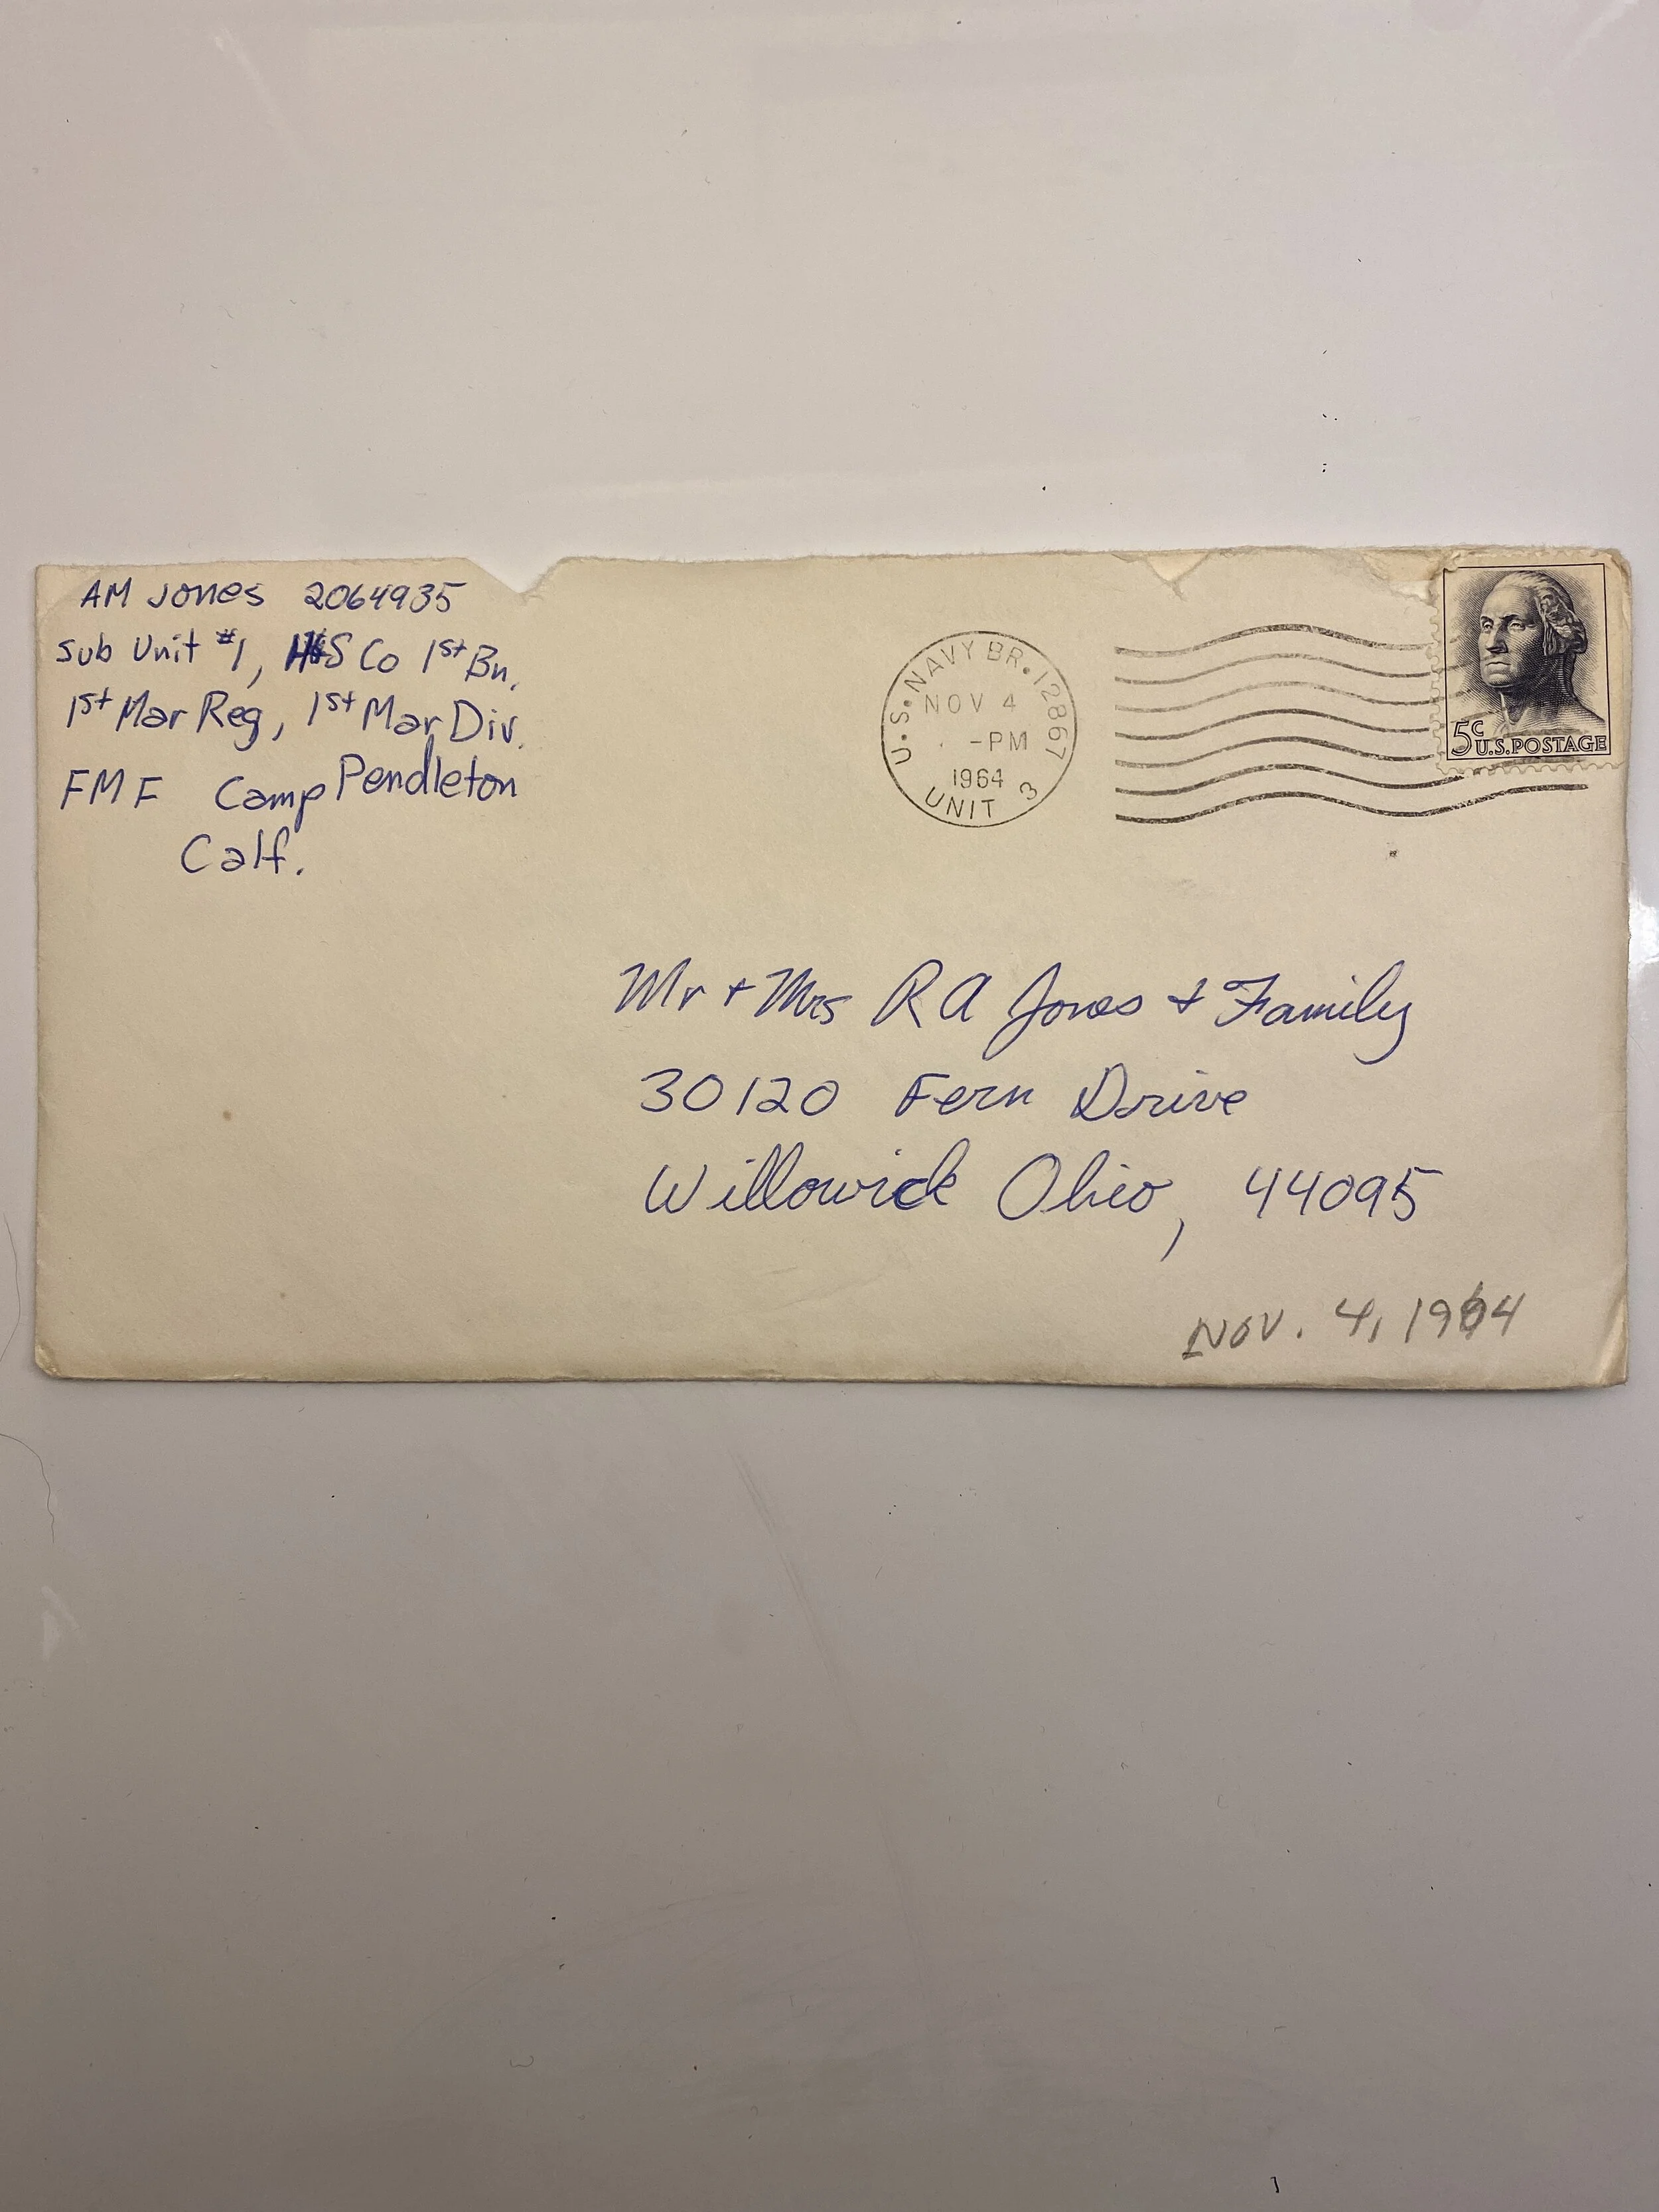 AM Jones 2064935
Sub Unit #1, H&S Co 1st Bn.
1st Mar Reg, 1st Mar Div.
FMF Camp Pendleton
Calf.
U.S. NAVY BR. 12867
NOV 4
-PM
1964
UNIT 3
5c U.S. POSTAGE
Mr + Mrs R A Jones + Family
30120 Fern Drive
Willowick Ohio, 44095
Nov. 4, 1964